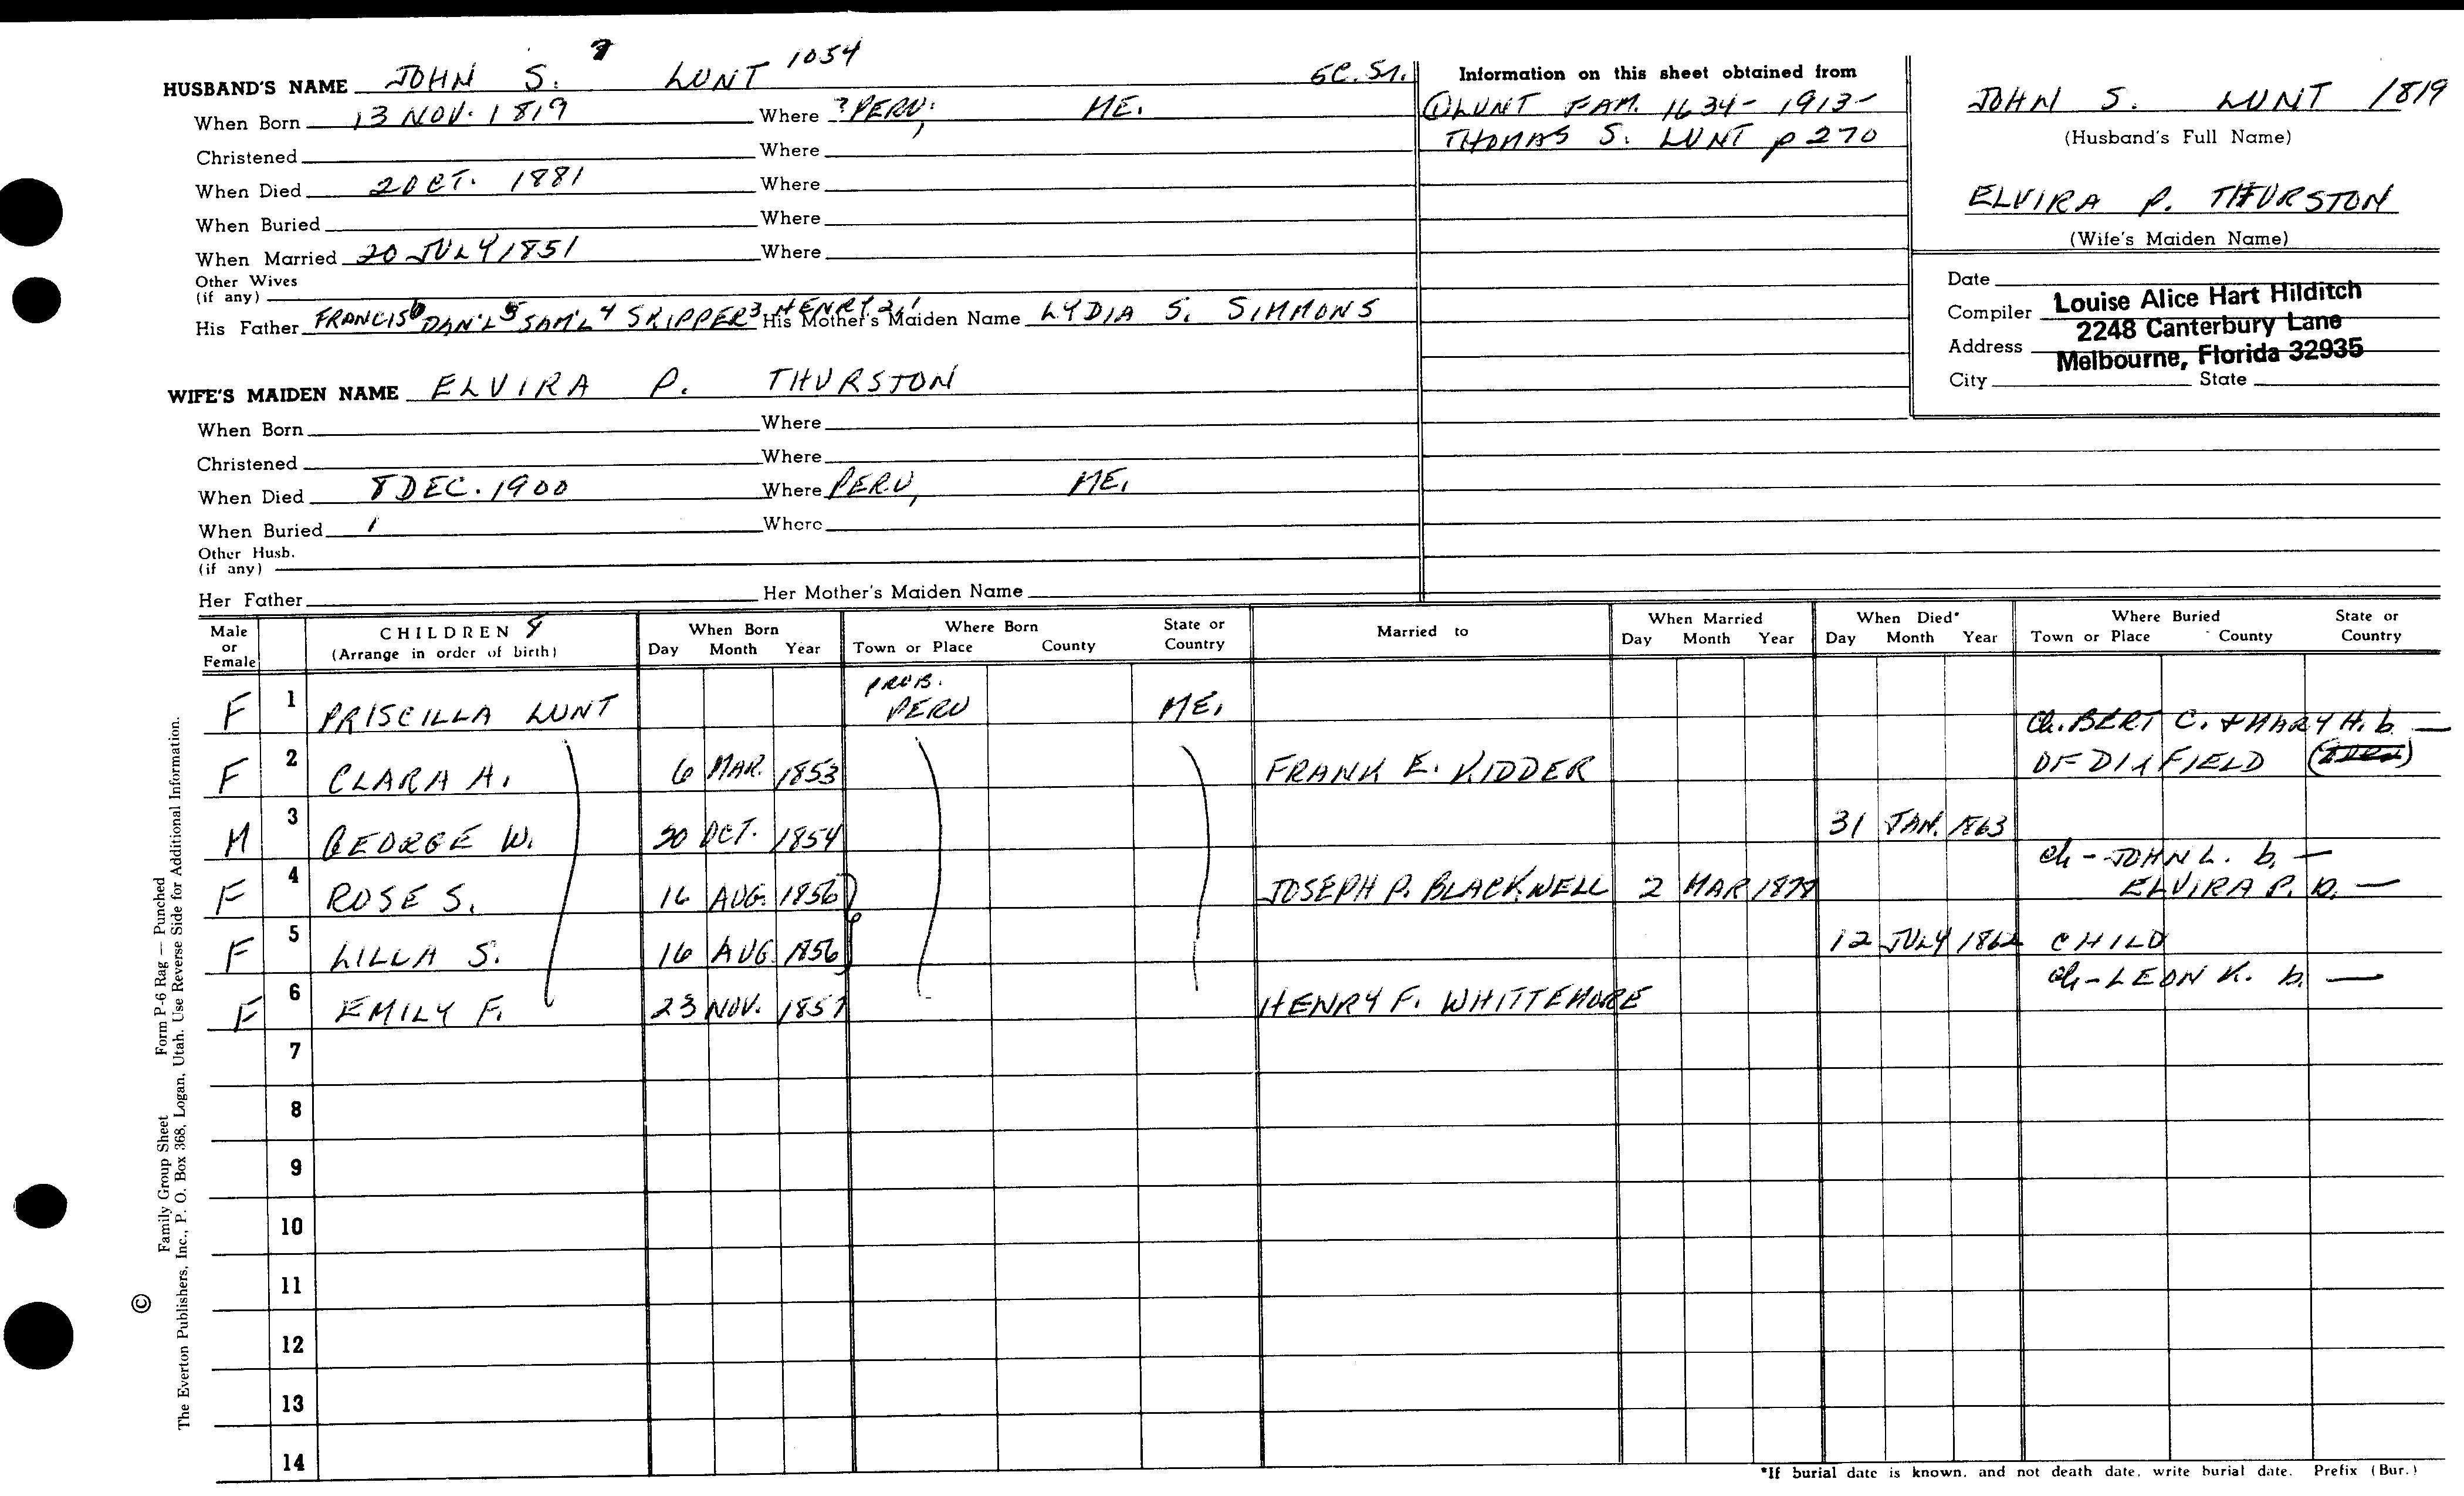 HUSBAND'S NAME JOHN S. 7 LUNT 1054
When Born 13 NOV. 1819 Where ? PERU, ME.
Christened Where
When Died 2 OCT. 1881 Where
When Buried Where
When Married 20 JULY 1851 Where
Other Wives
(if any)
His Father FRANCIS6 DAN'L5 SAM'L4 SKIPPER3 HENRY2,1 His Mother's Maiden Name LYDIA S. SIMMONS
WIFE'S MAIDEN NAME ELVIRA P. THURSTON
When Born Where
Christened Where
When Died 8 DEC. 1900 Where PERU, ME.
When Buried Where
Other Husb.
(if any)
Her Father Her Mother's Maiden Name
Information on this sheet obtained from
① LUNT FAM. 1634-1913-
THOMAS S. LUNT p 270
JOHN S. LUNT 1819
(Husband's Full Name)
ELVIRA P. THURSTON
(Wife's Maiden Name)
Date
Compiler Louise Alice Hart Hilditch
Address 2248 Canterbury Lane
Melbourne, Florida 32935
City State
Male or Female
CHILDREN
(Arrange in order of birth)
When Born
Day Month Year
Where Born
Town or Place County State or Country
Married to
When Married
Day Month Year
When Died*
Day Month Year
Where Buried
Town or Place County State or Country
F 1 PRISCILLA LUNT PROB. PERU ME.
Ch. BERT C. & MARY H. b. —
F 2 CLARA A. 6 MAR. 1853 FRANK E. KIDDER OF DIXFIELD
M 3 GEORGE W. 30 OCT. 1854 31 JAN. 1863
ch - JOHN L. b. —
F 4 ROSE S. 16 AUG. 1856 JOSEPH P. BLACKWELL 2 MAR 1879 ELVIRA P. b. —
F 5 LILLA S. 16 AUG. 1856 12 JULY 1862 CHILD
ch - LEON K. b. —
F 6 EMILY F. 23 NOV. 1857 HENRY F. WHITTEMORE
7
8
9
10
11
12
13
14
*If burial date is known, and not death date, write burial date. Prefix (Bur.)
© Family Group Sheet Form P-6 Rag — Punched
The Everton Publishers, Inc., P. O. Box 368, Logan, Utah. Use Reverse Side for Additional Information.